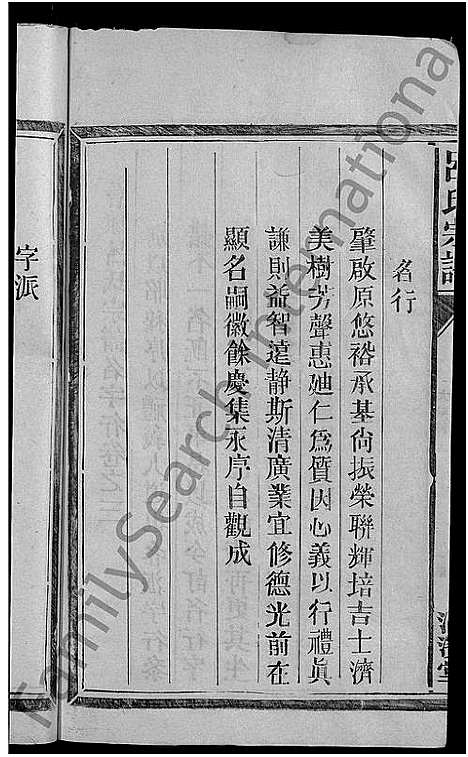 呂氏宗譜
名行
肇啟原悠裕承基尙振榮聯輝培吉士濟
美樹芳聲惠廸仁爲質因心義以行禮眞
謙則益智遠静斯清廣業宜修德光前在
顯名嗣徽餘慶集永序自觀成
字派
FamilySearch International